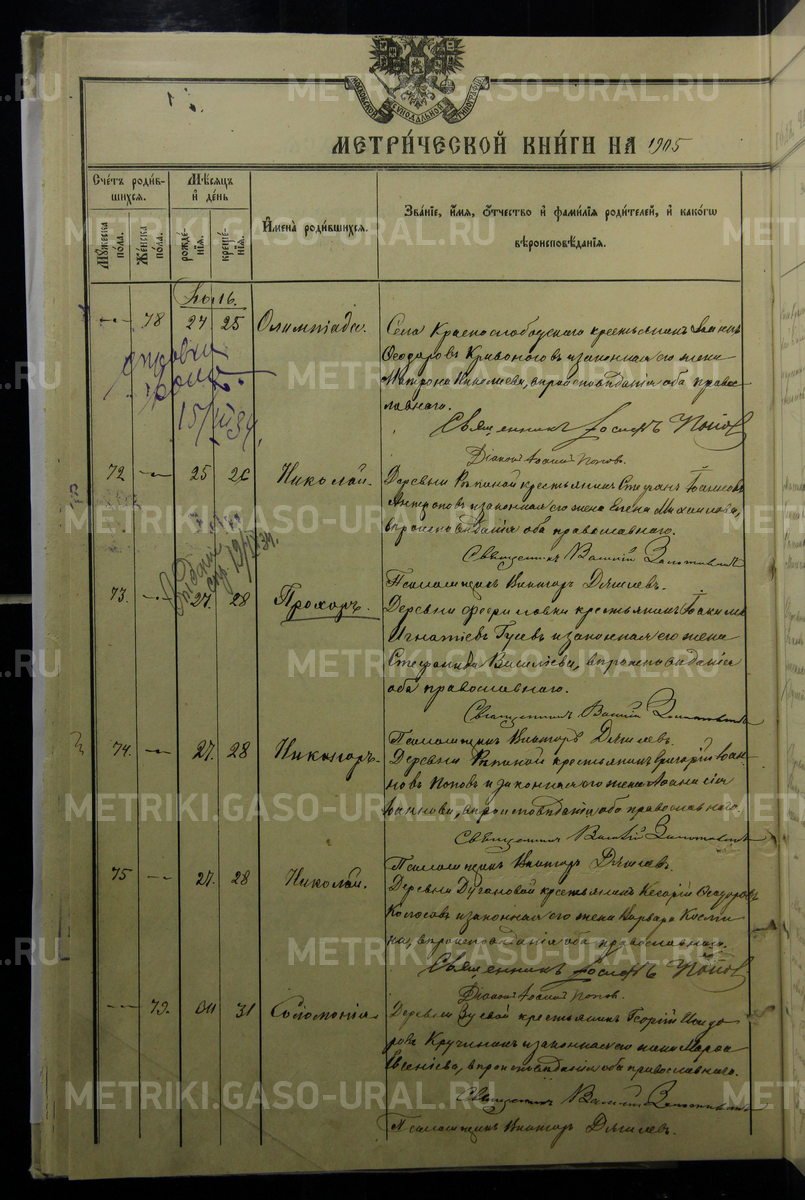 МОСКОВСКОЙ СѴНОДАЛЬНОЙ ТИПОГРАФІИ
МЕТРИ́ЧЕСКОЙ КНИ́ГИ НА 1905
Сче́тъ роди́в-
шихся.
Мѣ́сяцъ
и҆ де́нь
Мꙋ́жеска
по́ла.
Же́нска
по́ла.
рожде́-
нїѧ.
креще́-
нїѧ.
И҆мена̀ роди́вшихся.
Зва́нїе, и҆́мя, ѻ҆́тчество и҆ фами́лїѧ роди́телей, и҆ како́гѡ
вѣроисповѣ́данїѧ.
Іюль.
78 24 25 Олимпіада.
Села Краснослободскаго крестьянинъ
Ѳеодоровъ Кривоноговъ и законная его жена
Матрона Николаева, вѣроисповѣданія оба право-
славнаго.
Священникъ Іосифъ Поповъ
Діаконъ Іоаннъ Поповъ.
15/VII 34.
72 25 26 Николай.
Деревни Рѣпиной крестьянинъ Стефанъ
Антроповъ и законная его жена Елена Михаилова,
вѣроисповѣданія оба православнаго.
Священникъ Василій
Псаломщикъ Викторъ Дягилевъ.
73. 27. 28 Прохоръ.
Деревни крестьянинъ Іоакимъ
Игнатіевъ Гусевъ и законная его жена
Стефанида Василіева, вѣроисповѣданія
оба православнаго.
Священникъ Василій
Псаломщикъ Викторъ Дягилевъ.
74. 27. 28 Никаноръ.
Деревни Рѣпиной крестьянинъ Григорій Іоан-
новъ Поповъ и законная его жена Аѳанасія
Іоаннова, вѣроисповѣданія оба православнаго.
Священникъ Василій
Псаломщикъ Викторъ Дягилевъ.
75 27. 28 Николай.
Деревни Дугановой крестьянинъ Кесарій Ѳеодоровъ
Колосовъ и законная его жена Варвара Косми-
на, вѣроисповѣданія оба православнаго.
Священникъ Іосифъ Поповъ
Діаконъ Іоаннъ Поповъ.
79. 31 Соломонія
Деревни Зуевой крестьянинъ Георгій Исидо-
ровъ Кручининъ и законная его жена Марѳа
Евсеніева, вѣроисповѣданія оба православнаго.
Священникъ Василій
Псаломщикъ Викторъ Дягилевъ.
METRIKI.GASO-URAL.RU